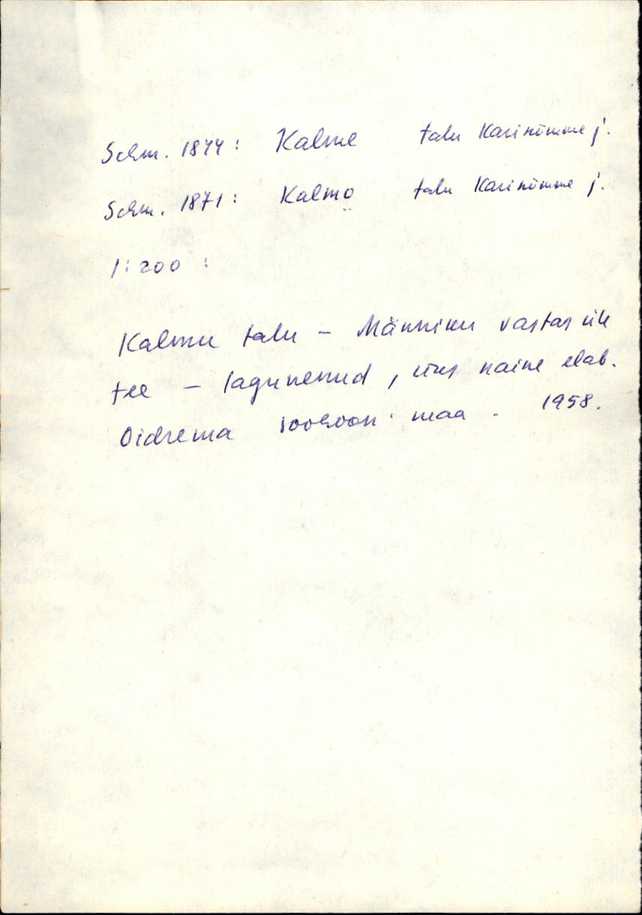 Schm. 1844: Kalme talu Karinõmme j.
Schm. 1871: Kalmo talu Karinõmme j.
1:200 :
Kalmu talu - Männiku vastas üle
tee - lagunenud, üks naine elab.
Oidrema sovhoosi maa. 1958.